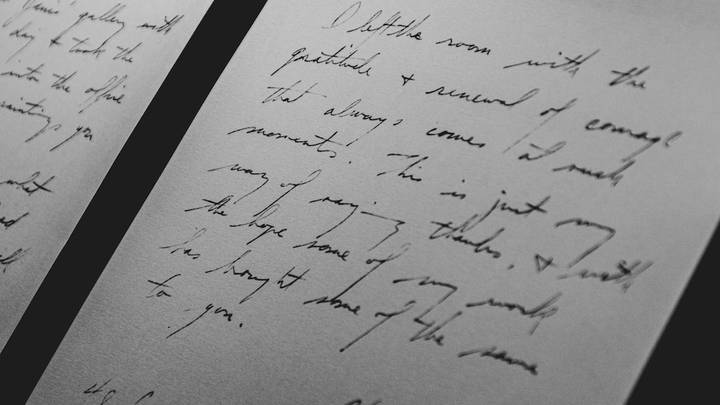 gallery with
day & took the
into the office
paintings you
what
I left the room with the
gratitude & renewal of courage
that always comes at such
moments. This is just my
way of saying thanks, & with
the hope some of my work
has brought some of the same
to you.